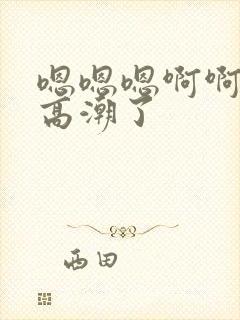 嗯嗯嗯啊啊
高潮了
西田